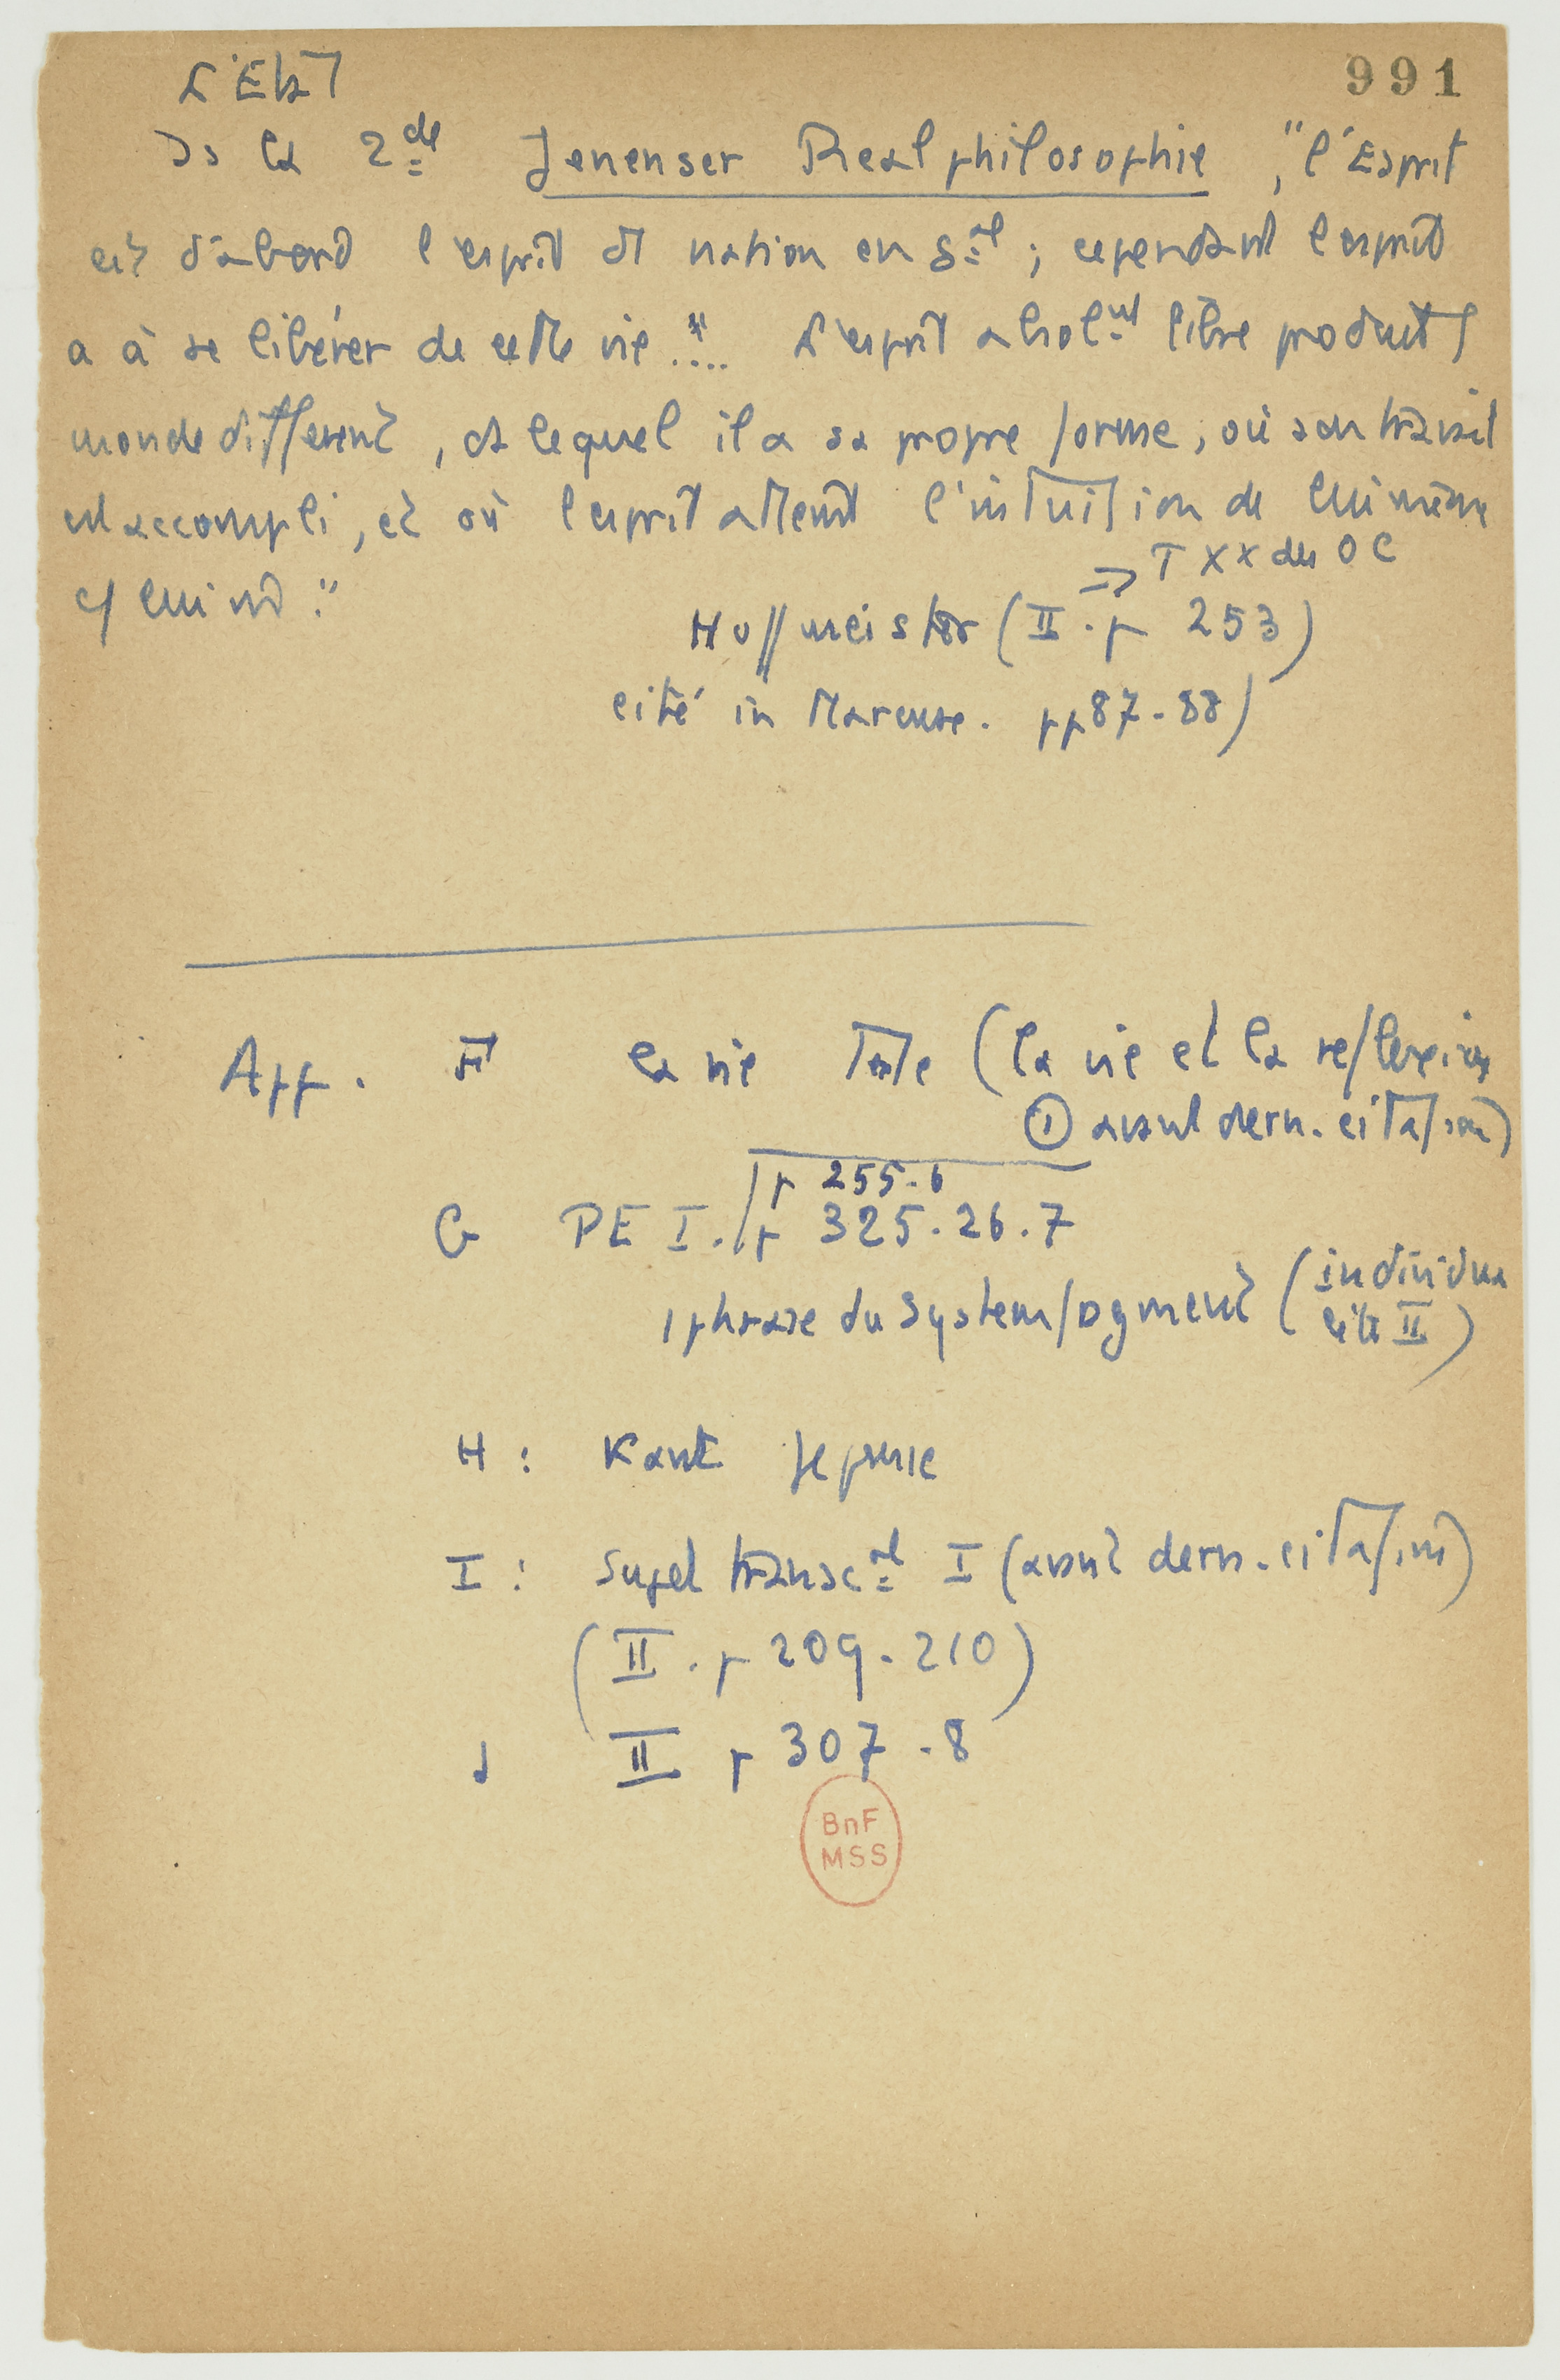 L'Etat
991
Ds la 2de Jenenser Realphilosophie, "l'Esprit
est d'abord l'esprit d'1 nation en gal ; cependant l'esprit
a à se libérer de cette vie."... L'esprit absolut libre produit 1
monde différent, ds lequel il a sa propre forme, où son travail
est accompli, et où l'esprit atteint l'intuition de lui même
c/ lui md."
=> T XX des OC
Hoffmeister (II. p 253)
cité in Marcuse. pp 87-88)
App. F la vie (la vie et la reflexion
① avant dern. citation)
p 255-6
G PE I. p 325.26.7
1 phrase du Systemfragment (individua
lité II)
H : Kant
I : Sujet transcal I (avant dern. citation)
(II. p 209-210)
J II p 307-8
BnF
MSS